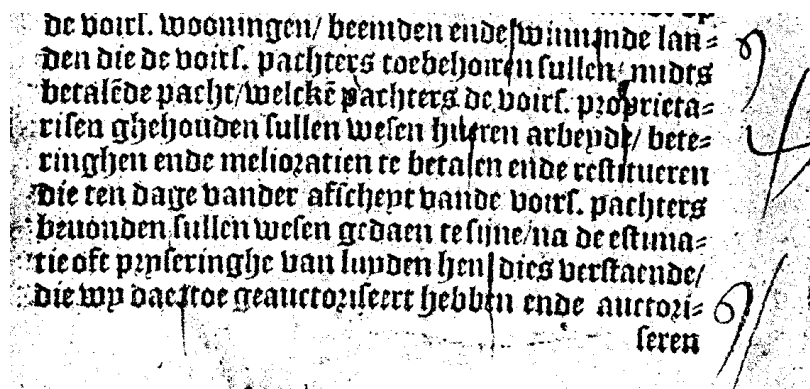 de voirs. wooningen/ beemden ende winnende lan⸗
den die de voirs. pachters toebehoiren sullen/ midts
betalēde pacht/ welckē pachters de voirs. proprieta⸗
risen ghehouden sullen wesen hueren arbeydt/ bete⸗
ringhen ende melioratien te betalen ende restitueren
die ten dage vander affscheyt vande voirs. pachters
beuonden sullen wesen gedaen te sijne/ na de estima⸗
tie oft prijseringhe van luyden hen dies verstaende/
die wy daertoe geauctoriseert hebben ende auctori⸗
seren